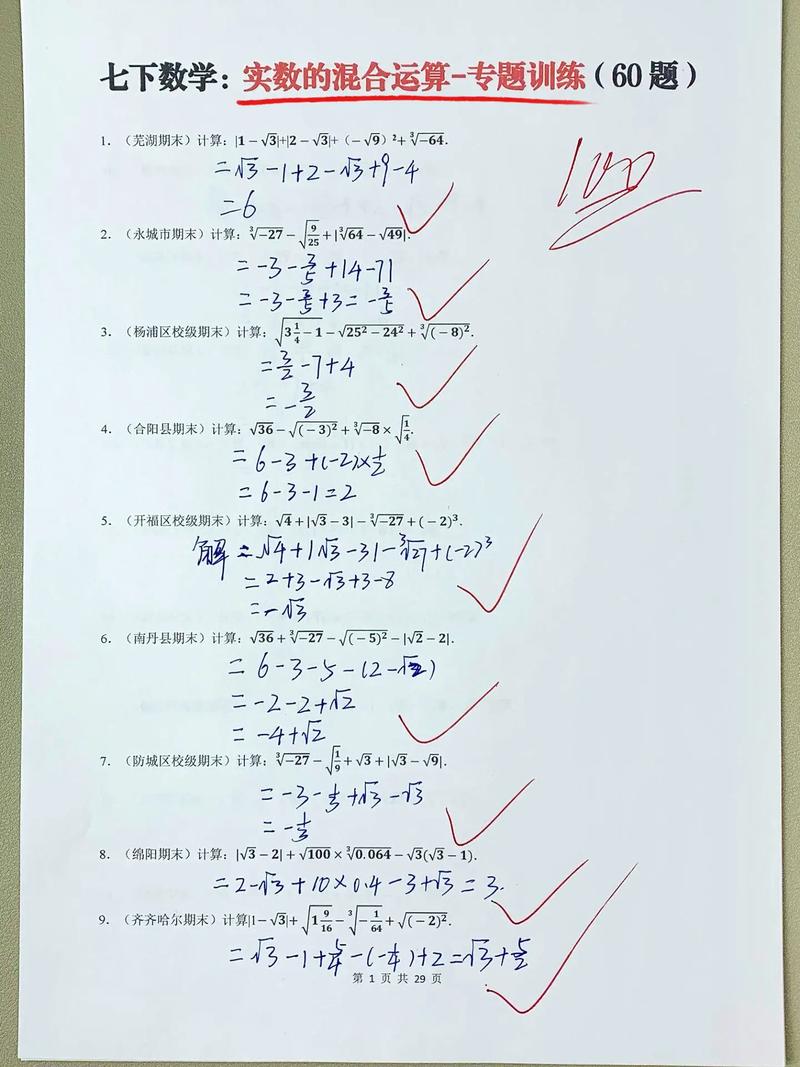 七下数学：实数的混合运算-专题训练（60 题）
100
1. （芜湖期末）计算：|1−√3|+|2−√3|+（−√9）²+∛−64.
=√3−1+2−√3+9−4
=6
2. （永城市期末）计算：∛−27−√(9/25)+|∛64−√49|.
=−3−3/5+|4−7|
=−3−3/5+3=−3/5
3. （杨浦区校级期末）计算：√(3 1/4−1)−√(25²−24²)+∛(−8)².
=3/2−7+4
=−3/2
4. （合阳县期末）计算：√36−√(−3)²+∛−8×√(1/4).
=6−3+(−2)×1/2
=6−3−1=2
5. （开福区校级期末）计算：√4+|√3−3|−∛−27+(−2)³.
解=√4+|√3−3|−∛27+(−2)³
=2+3−√3+3−8
=−√3
6. （南丹县期末）计算：√36+∛−27−√(−5)²−|√2−2|.
=6−3−5−(2−√2)
=−2−2+√2
=−4+√2
7. （防城区校级期末）计算：∛−27−√(1/9)+√3+|√3−√9|.
=−3−1/3+√3−√3
=−1/3
8. （绵阳期末）计算：|√3−2|+√100×∛0.064−√3(√3−1).
=2−√3+10×0.4−3+√3=3.
9. （齐齐哈尔期末）计算|1−√3|+√(1 9/16)−∛(−1/64)+√(−2)².
=√3−1+5/4−(−1/4)+2=√3+5/2
第 1 页 共 29 页